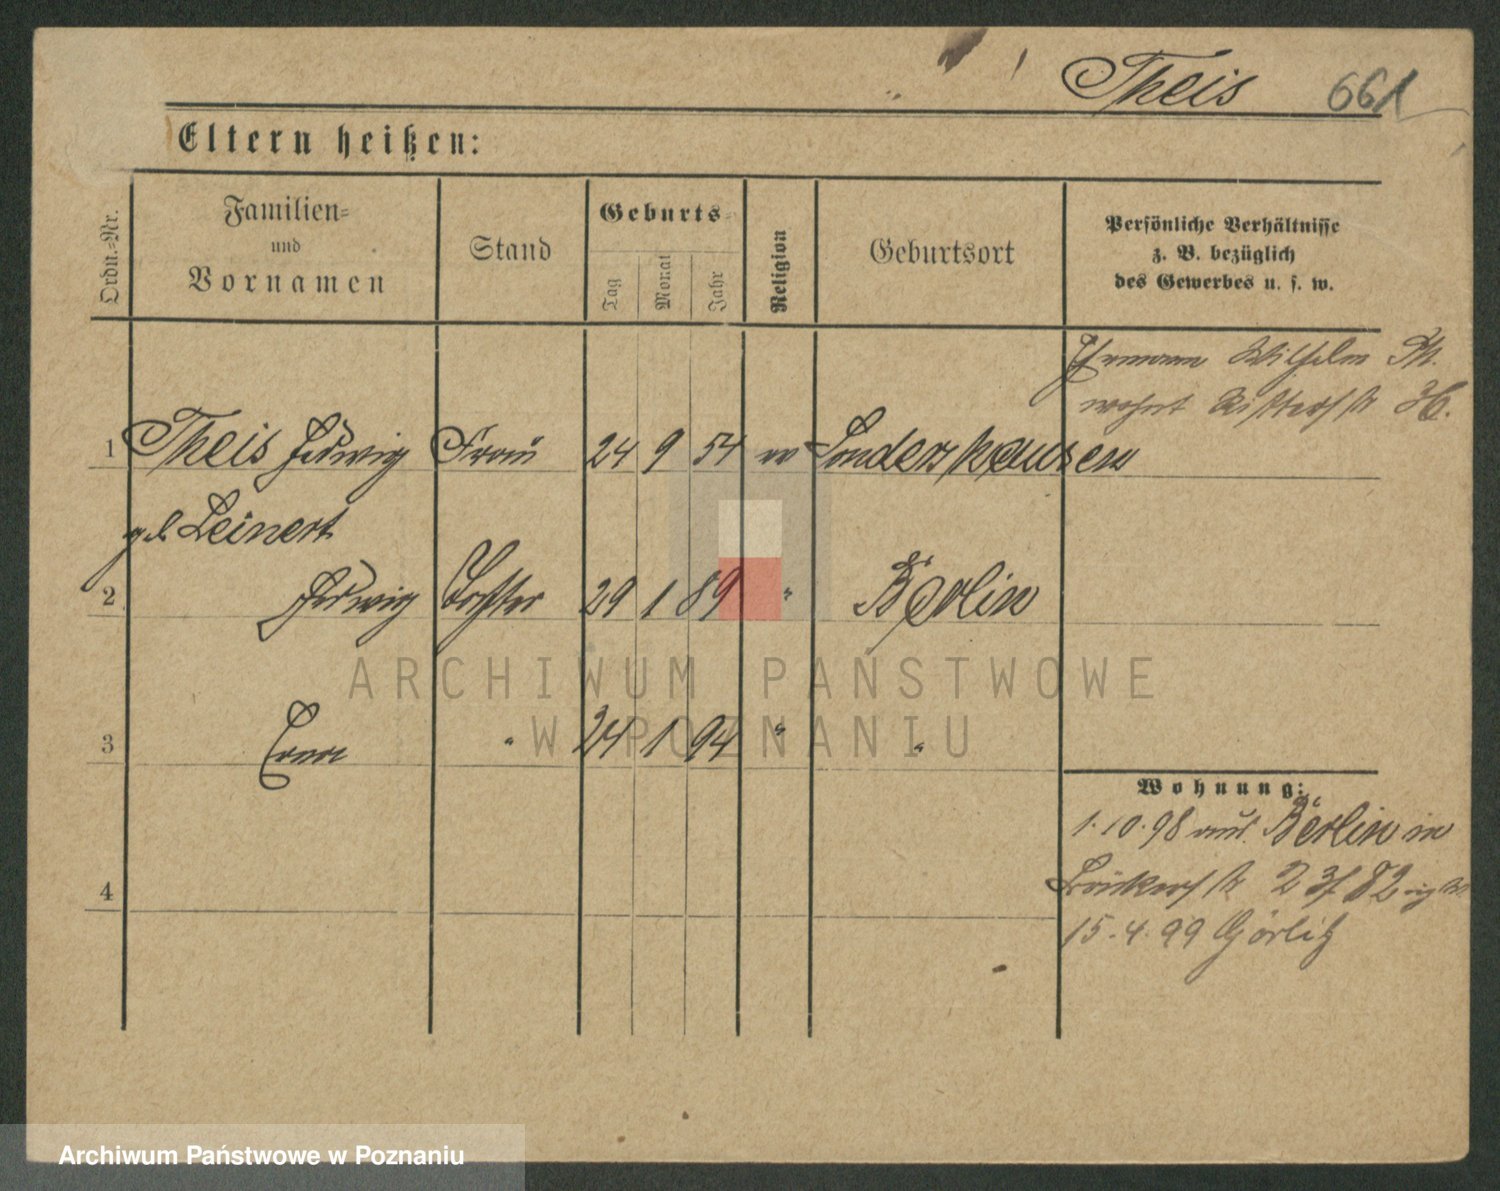 Theis 661
Eltern heißen:
Ordn.-Nr.
Familien-
und
Vornamen
Stand
Geburts-
Tag
Monat
Jahr
Religion
Geburtsort
Persönliche Verhältnisse
z. B. bezüglich
des Gewerbes u. s. w.
Ehemann Wilhelm Th.
wohnt Ritterstr 36.
1 Theis Hedwig Frau 24 9 54 ev Sondershausen
geb Leinert
2 Hedwig Tochter 29 1 89 " Berlin
3 Erna " 24 1 94 " "
4
Wohnung:
1.10.98 aus Berlin in
2 3/ 82
15.4.99 Görlitz
ARCHIWUM PAŃSTWOWE
W POZNANIU
Archiwum Państwowe w Poznaniu